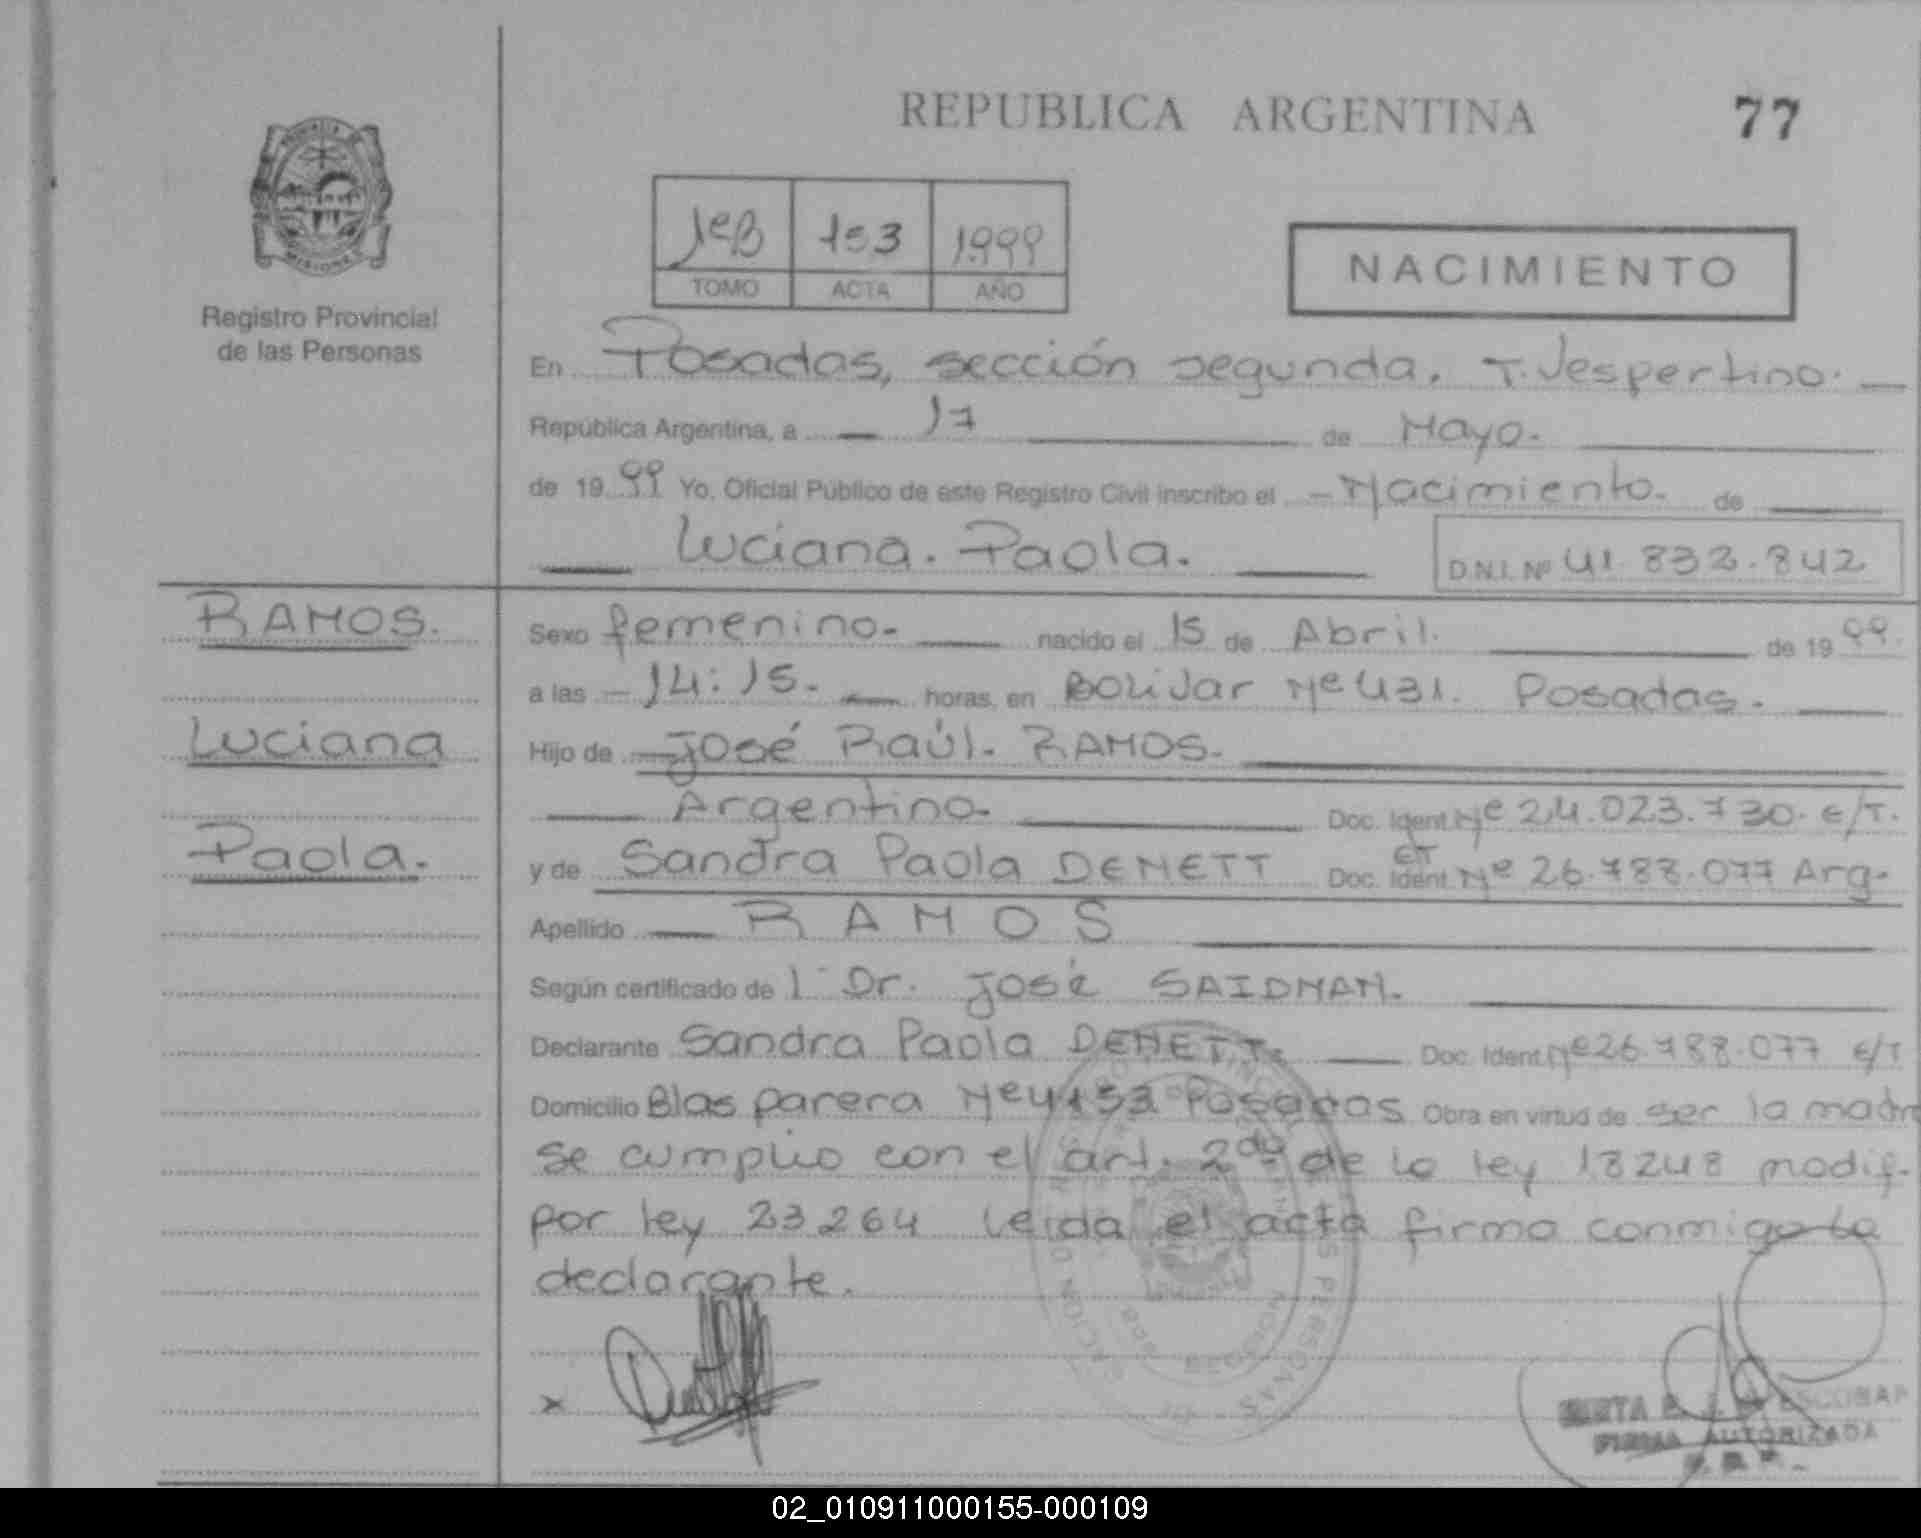 REPUBLICA ARGENTINA
77
MISIONES
Registro Provincial
de las Personas
1eB 153 1.999
TOMO ACTA AÑO
NACIMIENTO
En Posadas, sección segunda. T. Vespertino.
República Argentina, a 17 de Mayo.
de 1999 Yo, Oficial Público de este Registro Civil inscribo el Nacimiento. de
Luciana. Paola.
D.N.I. Nº 41.832.842
RAMOS.
Luciana
Paola.
Sexo femenino. nacido el 15 de Abril. de 1999.
a las 14:15. horas, en Bolivar Nº 431. Posadas.
Hijo de José Raúl. RAMOS.
Argentino. Doc. Ident. Nº 24.023.730. E/T.
y de Sandra Paola DEMETT Doc. Ident. Nº 26.788.077 Arg.
E/T
Apellido RAMOS
Según certificado de l Dr. José SAIDMAN.
Declarante Sandra Paola DEMETT. Doc. Ident. Nº 26.788.077 E/T
Domicilio Blas parera Nº 4153 Posadas Obra en virtud de ser la madre
se cumplio con el art. 2do de la ley 18248 modif.
por ley 23264 leida el acta firma conmigo la
declarante.
x
ESCOBAR
FIRMA AUTORIZADA
02_010911000155-000109